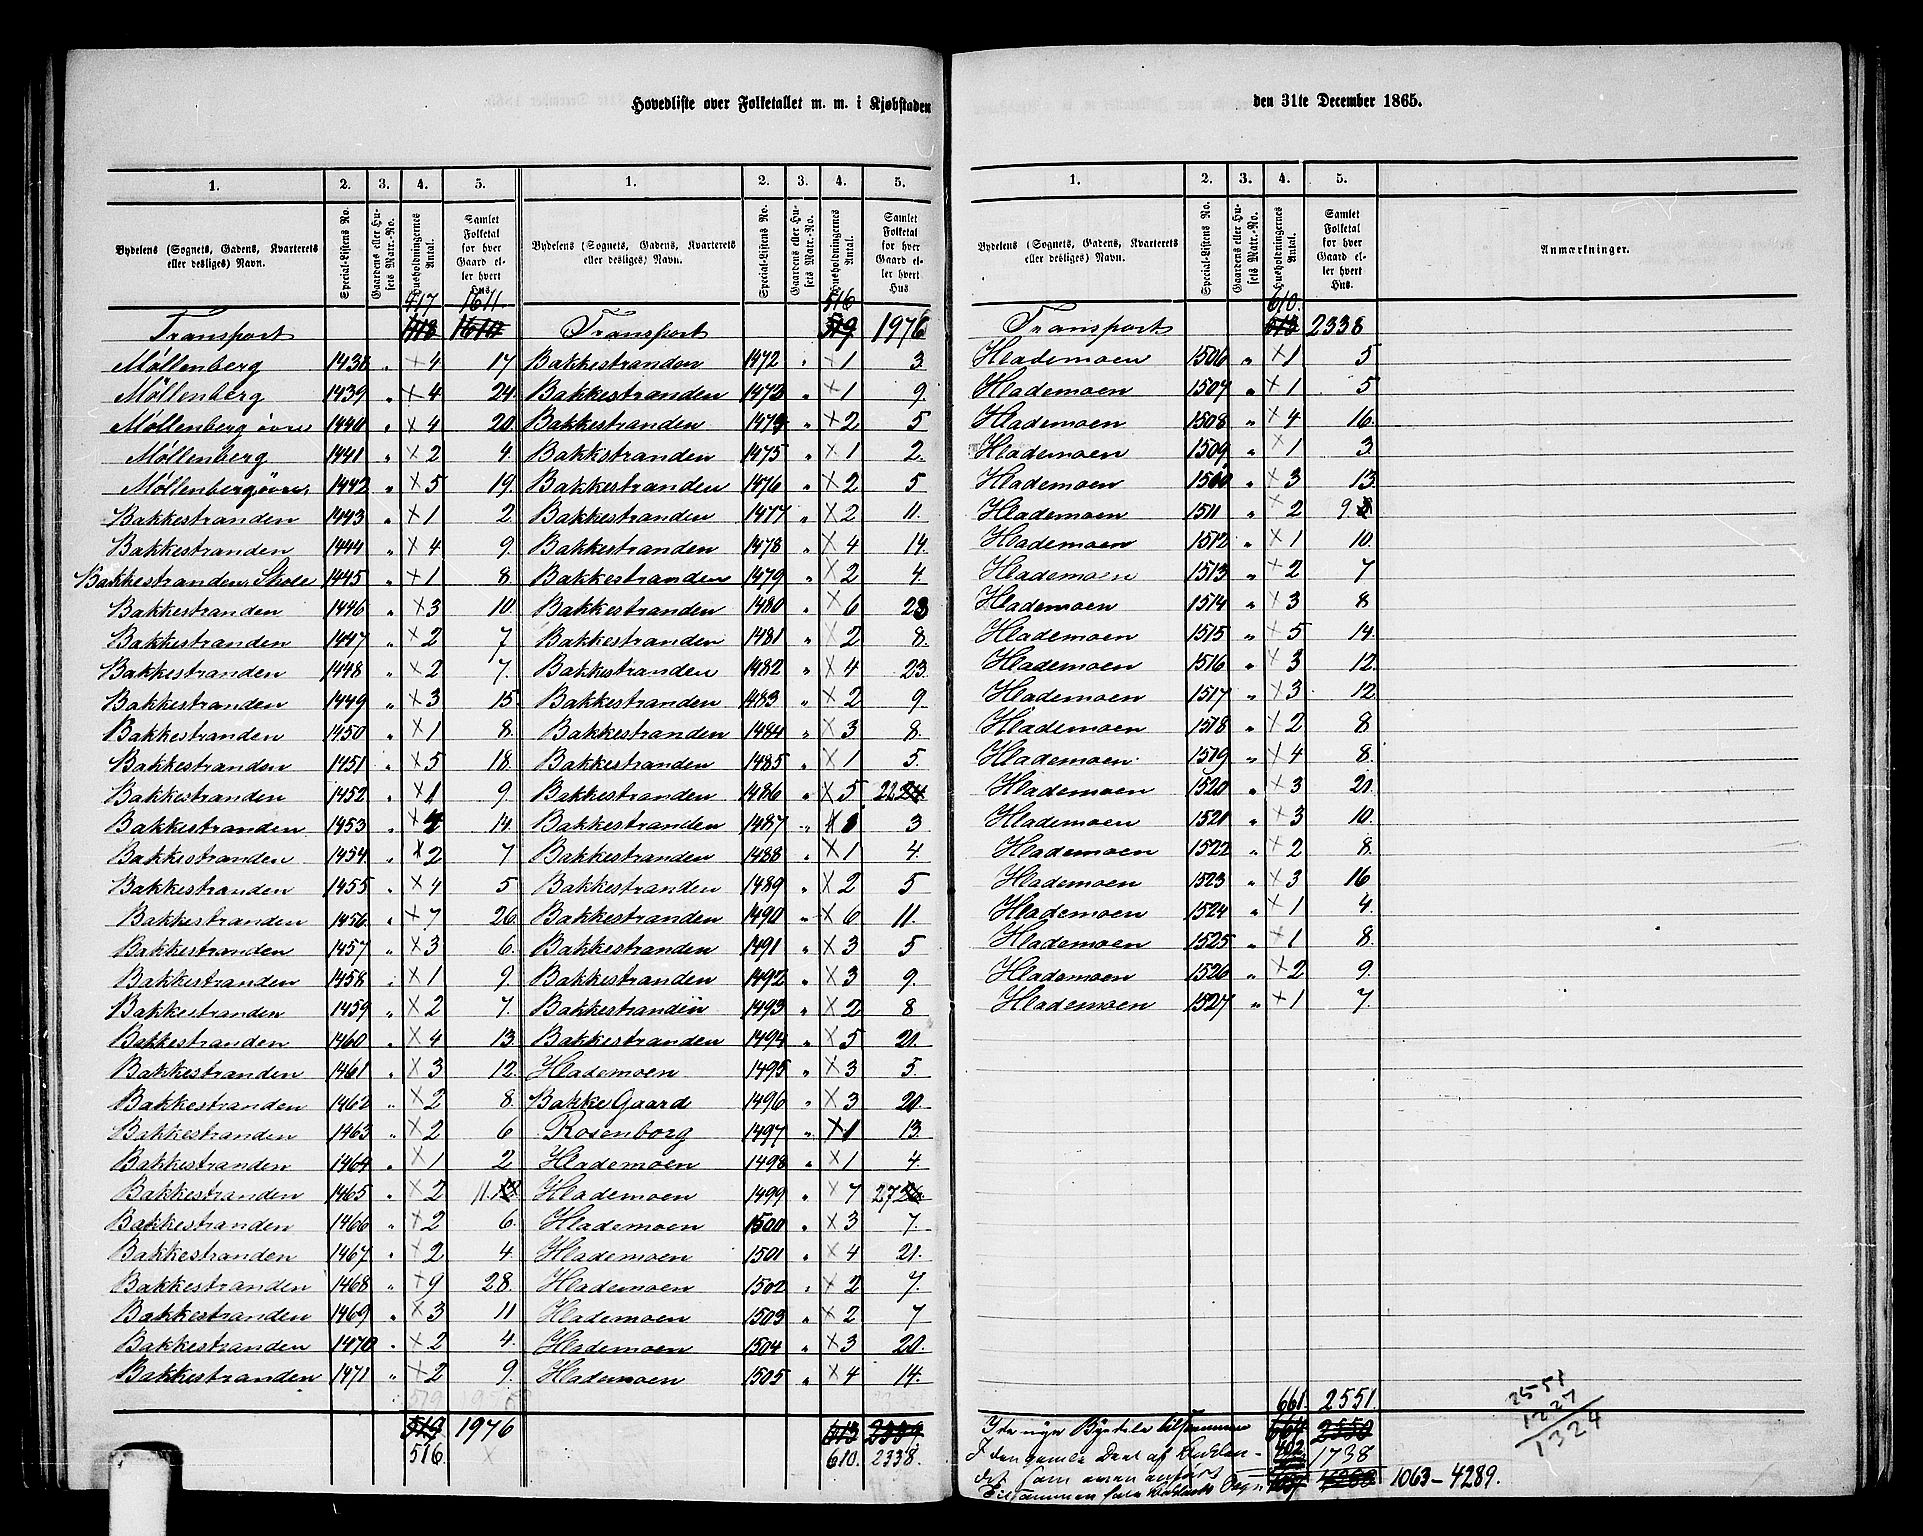 Hovedliste over Folketallet m. m. i Kjøbstaden
1. 2. 3. 4. 5. 1. 2. 3. 4. 5.
Bydelens (Sognets, Gadens, Kvarterets eller desliges) Navn. Special-Listens No. Gaardens eller Husets Matr.-No. Husholdningernes Antal. Samlet Folketal for hver Gaard eller hvert Hus. Bydelens (Sognets, Gadens, Kvarterets eller desliges) Navn. Special-Listens No. Gaardens eller Husets Matr.-No. Husholdningernes Antal. Samlet Folketal for hver Gaard eller hvert Hus
417 1611 516
Transport 418 1610 Transport 519 1976
Møllenberg 1438 " × 4 17 Bakkestranden 1472 " × 1 3.
Møllenberg 1439 " × 4 24. Bakkestranden 1473 " × 1 9.
Møllenberg øvre 1440 " × 4 20. Bakkestranden 1474 " × 2 5
Møllenberg 1441 " × 2 4. Bakkestranden 1475 " × 1 2.
Møllenberg øvre 1442 " × 5 19. Bakkestranden 1476 " × 2 5
Bakkestranden 1443 " × 1 2. Bakkestranden 1477 " × 2 11.
Bakkestranden 1444 " × 4 9. Bakkestranden 1478 " × 4 14.
Bakkestranden Skole 1445 " × 1 8. Bakkestranden 1479 " × 2 4.
Bakkestranden 1446 " × 3 10 Bakkestranden 1480 " × 6 23
Bakkestranden 1447 " × 2 7 Bakkestranden 1481 " × 2 8.
Bakkestranden 1448 " × 2 7. Bakkestranden 1482 " × 4 23.
Bakkestranden 1449 " × 3 15. Bakkestranden 1483 " × 2 9
Bakkestranden 1450 " × 1 8. Bakkestranden 1484 " × 3 8.
Bakkestranden 1451 " × 5 18. Bakkestranden 1485 " × 1 5.
Bakkestranden 1452 " × 1 9. Bakkestranden 1486 " × 5 22 24
Bakkestranden 1453 " × 4 14. Bakkestranden 1487 " × 1 3
Bakkestranden 1454 " × 2 7 Bakkestranden 1488 " × 1 4.
Bakkestranden 1455 " × 4 5 Bakkestranden 1489 " × 2 5
Bakkestranden 1456 " × 7 26. Bakkestranden 1490 " × 6 11.
Bakkestranden 1457 " × 3 6. Bakkestranden 1491 " × 3 5
Bakkestranden 1458 " × 1 9. Bakkestranden 1492 " × 3 9.
Bakkestranden 1459 " × 2 7. Bakkestranden 1493 " × 2 8
Bakkestranden 1460 " × 4 13. Bakkestranden 1494 " × 5 21.
Bakkestranden 1461 " × 3 12. Hlademoen 1495 " × 3 5
Bakkestranden 1462 " × 2 8. Bakke Gaard 1496 " × 3 20.
Bakkestranden 1463 " × 2 6 Rosenborg 1497 " × 1 13.
Bakkestranden 1464 " × 1 2 Hlademoen 1498 " × 1 4.
Bakkestranden 1465 " × 2 11. Hlademoen 1499 " × 7 27 26.
Bakkestranden 1466 " × 2 6. Hlademoen 1500 " × 3 7.
Bakkestranden 1467 " × 2 4. Hlademoen 1501 " × 4 21.
Bakkestranden 1468 " × 9 28. Hlademoen 1502 " × 2 7.
Bakkestranden 1469 " × 3 11 Hlademoen 1503 " × 2 7
Bakkestranden 1470 " × 2 4. Hlademoen 1504 " × 3 20.
Bakkestranden 1471 " × 2 9. Hlademoen 1505 " × 4 14.
519 1976 613 2339
516. 610. 2338.
den 31te December 1865.
1. 2. 3. 4. 5.
Bydelens (Sognets, Gadens, Kvarterets eller desliges) Navn. Special-Listens No. Gaardens eller Husets Matr.-No. Husholdningernes Antal. Samlet Folketal for hver Gaard eller hvert Hus. Anmærkninger.
610.
Transport 613 2338
Hlademoen 1506 " × 1 5
Hlademoen 1507 " × 1 5
Hlademoen 1508 " × 4 16.
Hlademoen 1509 " × 1 3.
Hlademoen 1510 " × 3 13.
Hlademoen 1511 " × 2 9 8
Hlademoen 1512 " × 1 10.
Hlademoen 1513 " × 2 7
Hlademoen 1514 " × 3 8
Hlademoen 1515 " × 5 14.
Hlademoen 1516 " × 3 12.
Hlademoen 1517 " × 3 12
Hlademoen 1518 " × 2 8
Hlademoen 1519 " × 4 8.
Hlademoen 1520 " × 3 21.
Hlademoen 1521 " × 3 10.
Hlademoen 1522 " × 2 8.
Hlademoen 1523 " × 3 16
Hlademoen 1524 " × 1 4.
Hlademoen 1525 " × 1 8.
Hlademoen 1526 " × 2 9.
Hlademoen 1527 " × 1 7.
661. 2551.
I de nye Bydele tilsammen 664 2550
I den gamle Deel af 402 1738
det som oven anført
Tilsammen 1063 – 4289.
2551
1227
1324